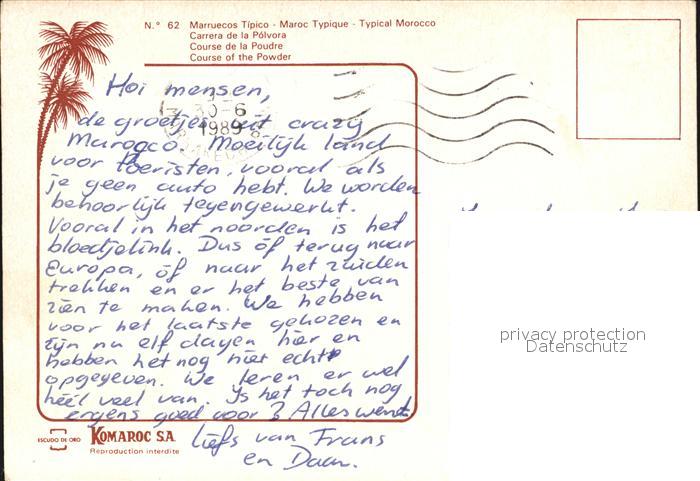 N.° 62 Marruecos Típico - Maroc Typique - Typical Morocco
Carrera de la Pólvora
Course de la Poudre
Course of the Powder
Hoi mensen,
30-6
1989
de groetjes uit crazy
Marocco. Moeilijk land
voor toeristen, vooral als
je geen auto hebt. We worden
behoorlijk tegengewerkt.
Vooral in het noorden is het
bloedjelink. Dus óf terug naar
Europa, óf naar het zuiden
trekken en er het beste van
zien te maken. We hebben
voor het laatste gekozen en
zijn nu elf dagen hier en
hebben het nog niet echt
opgegeven. We leren er wel
héél veel van. Is het toch nog
ergens goed voor? Alles went
Liefs van Frans
en Daan.
privacy protection
Datenschutz
ESCUDO DE ORO
KOMAROC S.A.
Reproduction interdite